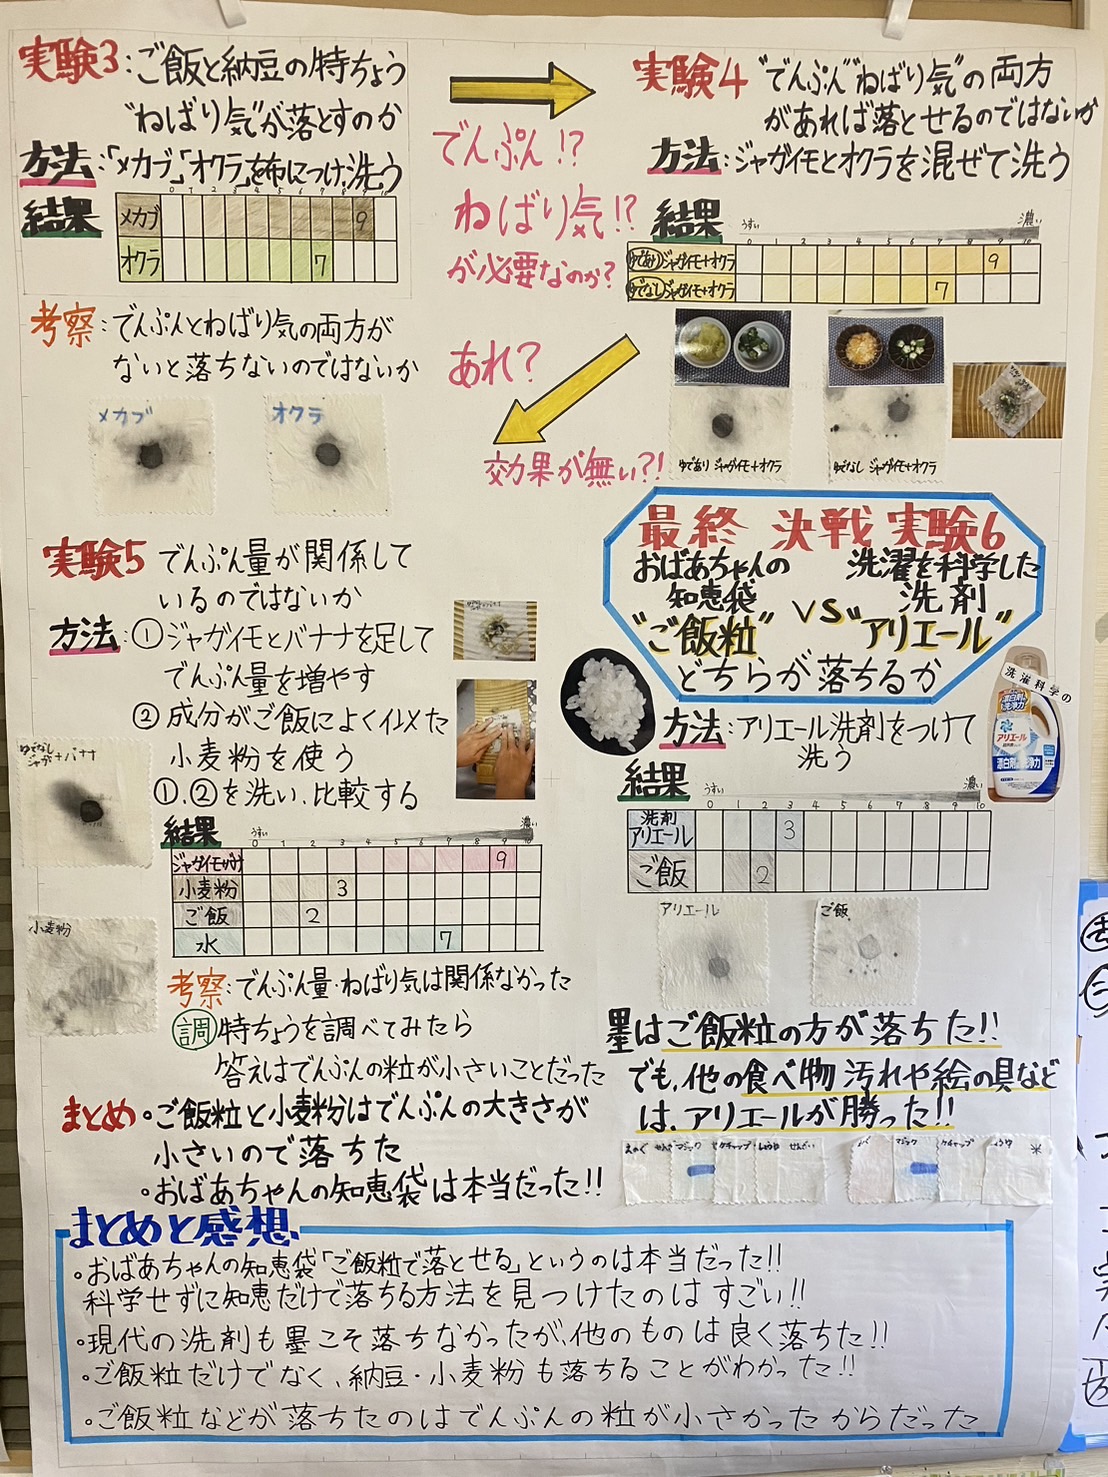 実験3:ご飯と納豆の特ちょう
"ねばり気"が落とすのか
方法:「メカブ」「オクラ」を布につけ、洗う
結果
0 1 2 3 4 5 6 7 8 9 10
メカブ 9
オクラ 7
考察:でんぷんとねばり気の両方が
ないと落ちないのではないか
メカブ
オクラ
でんぷん!?
ねばり気!?
が必要なのか?
あれ?
効果が無い?!
実験4 "でんぷん""ねばり気"の両方
があれば落とせるのではないか
方法:ジャガイモとオクラを混ぜて洗う
結果
うすい 濃い
0 1 2 3 4 5 6 7 8 9 10
ゆであり ジャガイモ+オクラ 9
ゆでなし ジャガイモ+オクラ 7
ゆであり ジャガイモ+オクラ
ゆでなし ジャガイモ+オクラ
実験5 でんぷん量が関係して
いるのではないか
方法:①ジャガイモとバナナを足して
でんぷん量を増やす
②成分がご飯によくイ以た
小麦粉を使う
①、②を洗い、比較する
ゆでなし
ジャガ+バナナ
小麦粉
結果
うすい 濃い
0 1 2 3 4 5 6 7 8 9 10
9
小麦粉 3
ご飯 2
水 7
考察:でんぷん量・ねばり気は関係なかった
調 特ちょうを調べてみたら
答えはでんぷんの粒が小さいことだった
まとめ・ご飯粒と小麦粉はでんぷんの大きさが
小さいので落ちた
・おばあちゃんの知恵袋は本当だった!!
最終 決戦 実験6
おばあちゃんの 洗濯を科学した
知恵袋 洗剤
"ご飯粒" VS "アリエール"
どちらが落ちるか
洗濯科学の
アリエール
漂白剤 洗浄力
方法:アリエール洗剤をつけて
洗う
結果
うすい 濃い
0 1 2 3 4 5 6 7 8 9 10
洗剤
アリエール 3
ご飯 2
アリエール
ご飯
墨はご飯粒の方が落ちた!!
でも、他の食べ物汚れや絵の具など
は、アリエールが勝った!!
えのぐ マジック ケチャップ しょうゆ
マジック ケチャップ しょうゆ 米
まとめと感想
・おばあちゃんの知恵袋「ご飯粒で落とせる」というのは本当だった!!
科学せずに知恵だけで落ちる方法を見つけたのはすごい!!
・現代の洗剤も墨こそ落ちなかったが、他のものは良く落ちた!!
・ご飯粒だけでなく、納豆・小麦粉も落ちることがわかった!!
・ご飯粒などが落ちたのはでんぷんの粒が小さかったからだった